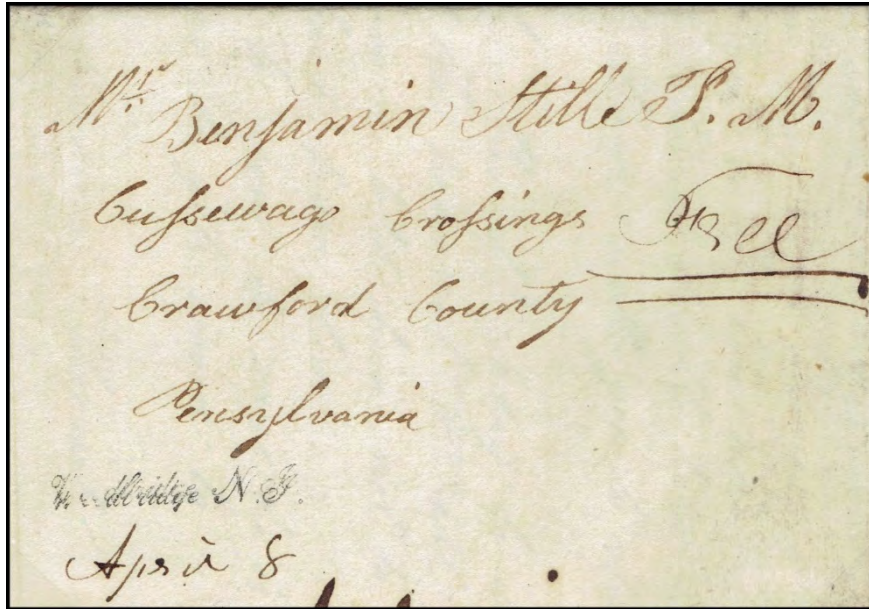 Mr. Benjamin Stille P. M.
Cussewago Crossings Free
Crawford County
Pensylvania
Woodbridge N. J.
April 8